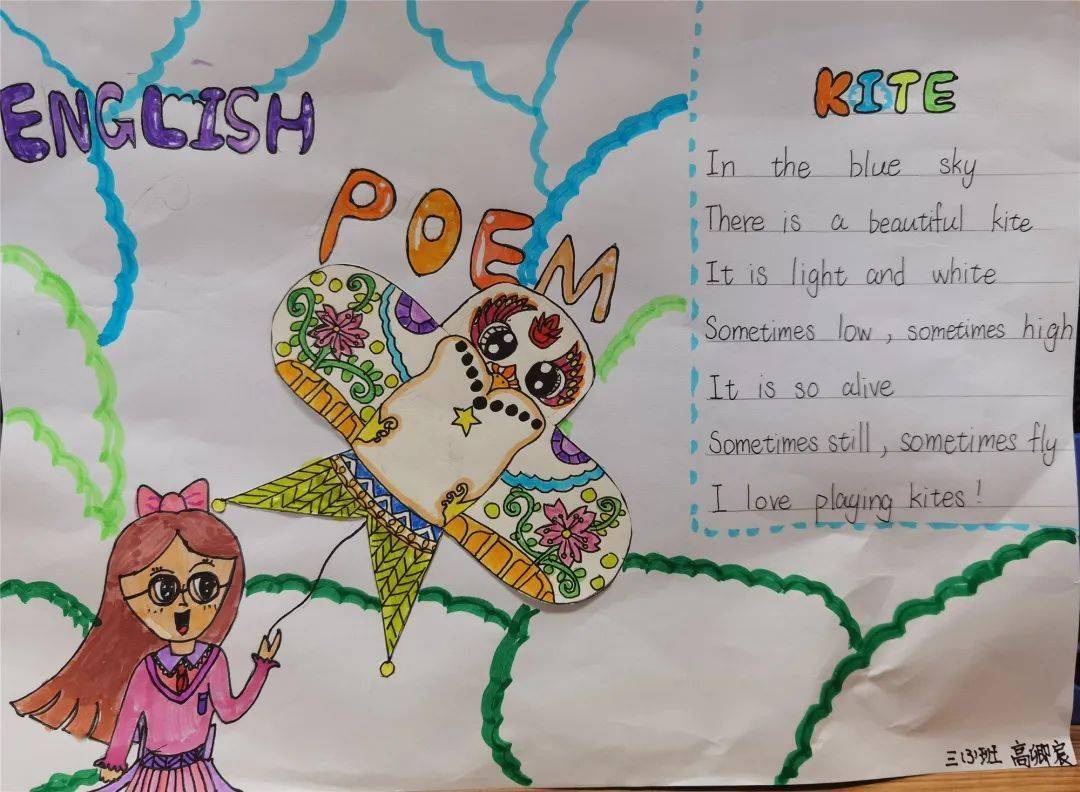 ENGLISH
POEM
KITE
In the blue sky
There is a beautiful kite
It is light and white
Sometimes low, sometimes high
It is so alive
Sometimes still, sometimes fly
I love playing kites!
三(3)班 高卿宸